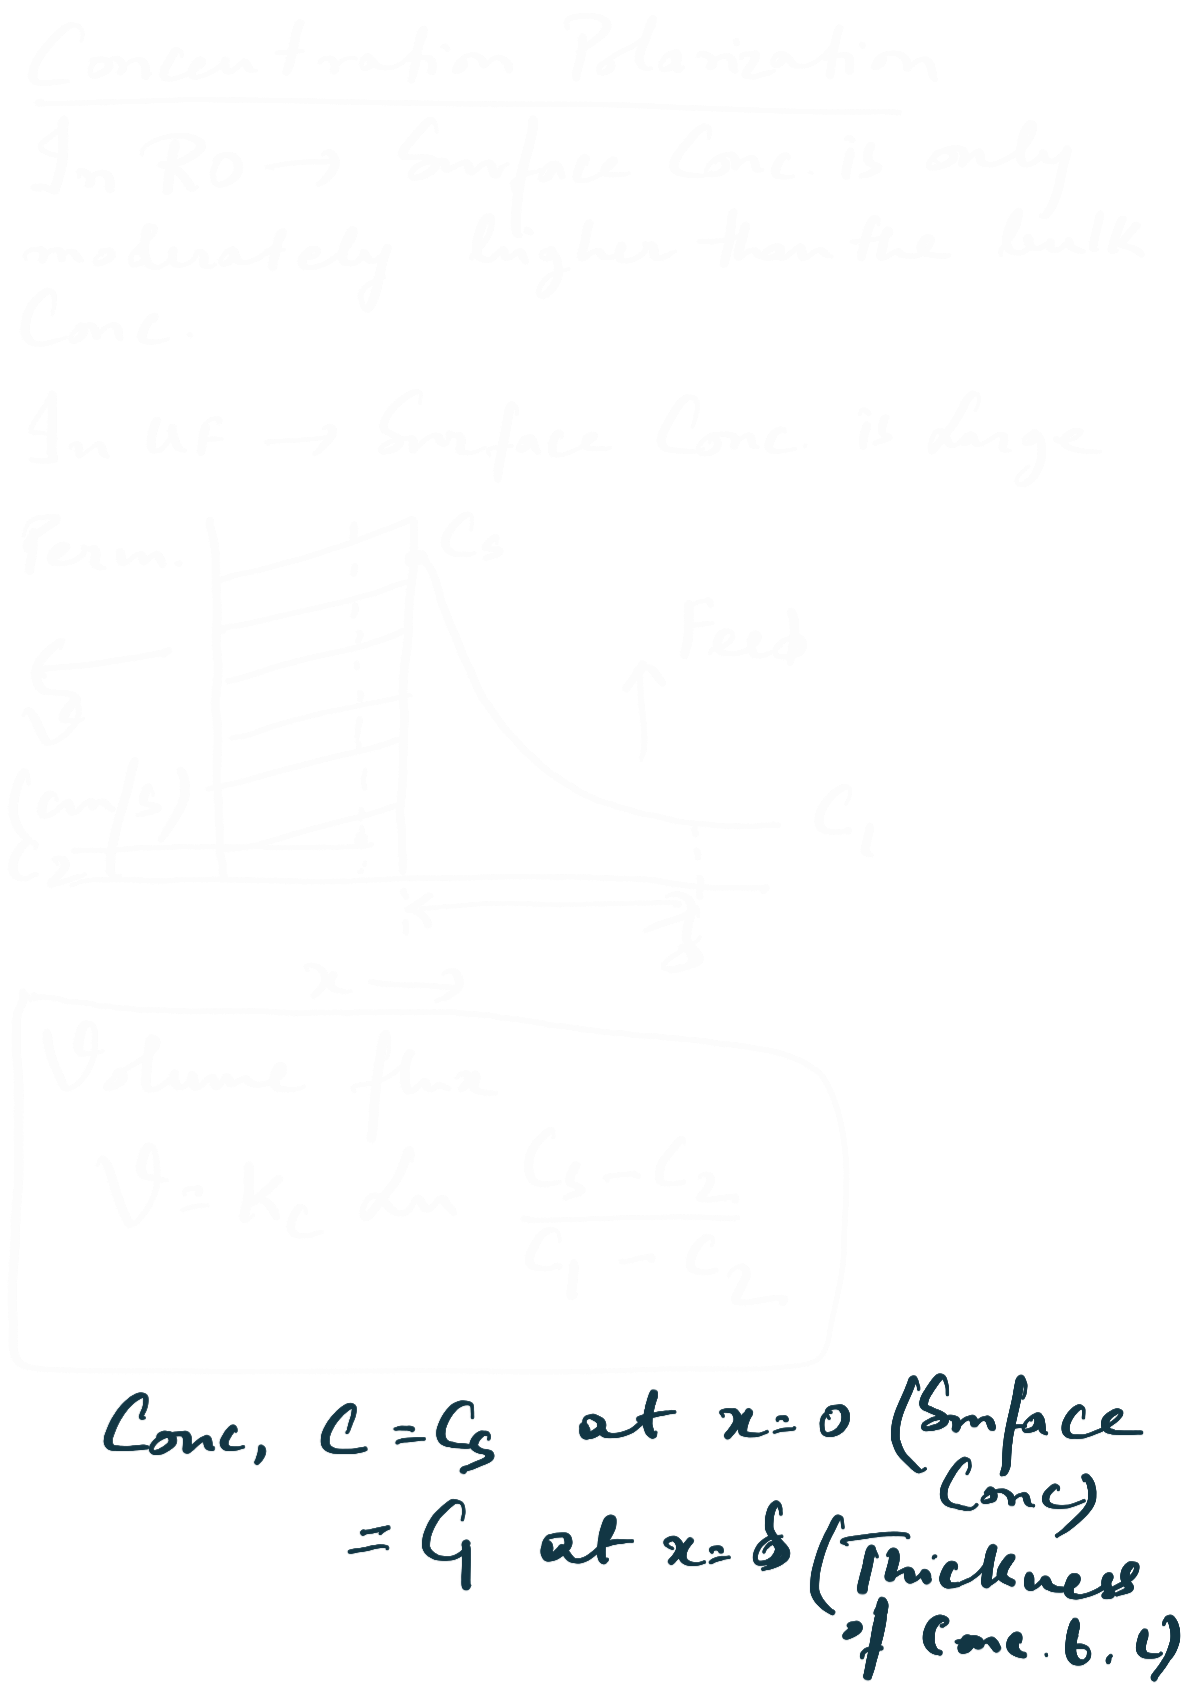 Concentration Polarization
In RO → Surface Conc. is only
moderately higher than the bulk
Conc.
In UF → Surface Conc. is Large
Perm.
Cs
Feed
v
(cm/s)
C1
C2
δ
x →
Volume flux
v = Kc Ln (Cs - C2) / (C1 - C2)
Conc, C = Cs at x = 0 (Surface
Conc)
= C1 at x = δ (Thickness
of Conc. b. L)